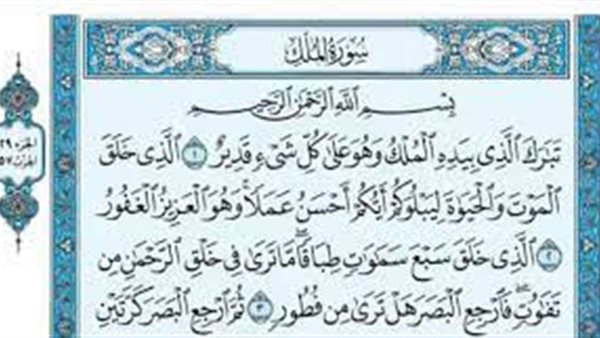 سُورَةُ المُلْكِ
بِسْمِ اللَّهِ الرَّحْمَٰنِ الرَّحِيمِ
تَبَارَكَ الَّذِي بِيَدِهِ الْمُلْكُ وَهُوَ عَلَىٰ كُلِّ شَيْءٍ قَدِيرٌ ١ الَّذِي خَلَقَ
الْمَوْتَ وَالْحَيَوٰةَ لِيَبْلُوَكُمْ أَيُّكُمْ أَحْسَنُ عَمَلًا ۚ وَهُوَ الْعَزِيزُ الْغَفُورُ
٢ الَّذِي خَلَقَ سَبْعَ سَمَٰوَٰتٍ طِبَاقًا ۖ مَّا تَرَىٰ فِي خَلْقِ الرَّحْمَٰنِ مِن
تَفَٰوُتٍ ۖ فَارْجِعِ الْبَصَرَ هَلْ تَرَىٰ مِن فُطُورٍ ٣ ثُمَّ ارْجِعِ الْبَصَرَ كَرَّتَيْنِ
الجزء ٢٩